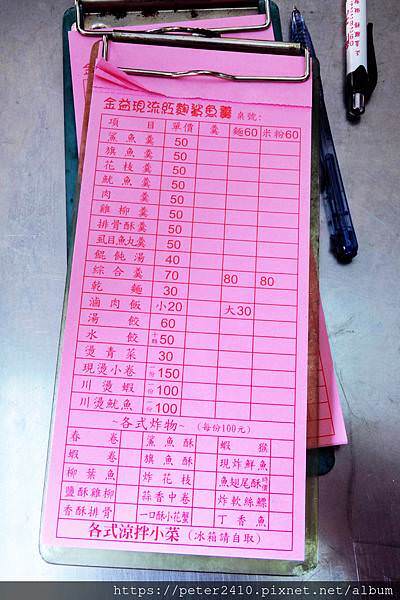 金益現流紅麴鯊魚羹 桌號:
項 目 單價 羹 麵60 米粉60
鯊魚羹 50
旗魚羹 50
花枝羹 50
魷魚羹 50
肉羹 50
雞柳羹 50
排骨酥羹 50
虱目魚丸羹 50
餛飩湯 40
綜合羹 70 80 80
乾麵 30
滷肉飯 小20 大30
湯餃 60
水餃 十顆50
燙青菜 30
現燙小卷 一份150
川燙蝦 一份100
川燙魷魚 一份100
~各式炸物~ (每份100元)
春卷 鯊魚酥 蝦猴
蝦卷 旗魚酥 現炸鮮魚
柳葉魚 炸花枝 魚翅尾酥
鹽酥雞柳 蒜香中卷 炸軟絲鰾
香酥排骨 一口酥小花蟹 丁香魚
各式涼拌小菜 (冰箱請自取)
https://peter2410.pixnet.net/album